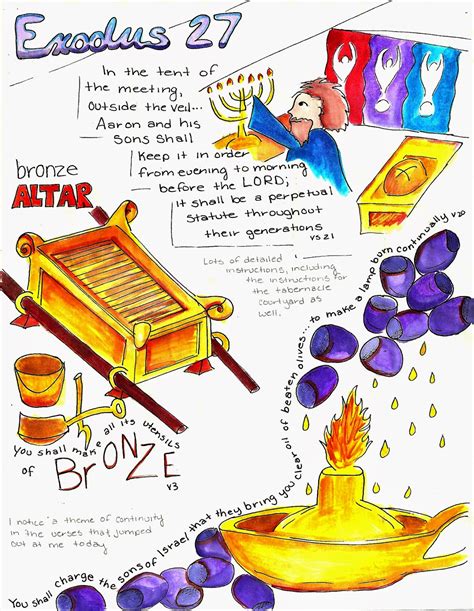 Exodus 27
In the tent of
the meeting,
outside the veil...
Aaron and his
sons shall
Keep it in order
from evening to morning
before the LORD;
it shall be a perpetual
statute throughout
their generations
vs 21
bronze
ALTAR
Lots of detailed
instructions, including
the instructions for
the tabernacle
courtyard as
well.
You shall make all its utensils
of BrONZE
v3
I notice a theme of continuity
in the verses that jumped
out at me today
You shall charge the sons of Israel that they bring you clear oil of beaten olives... to make a lamp burn continually v20